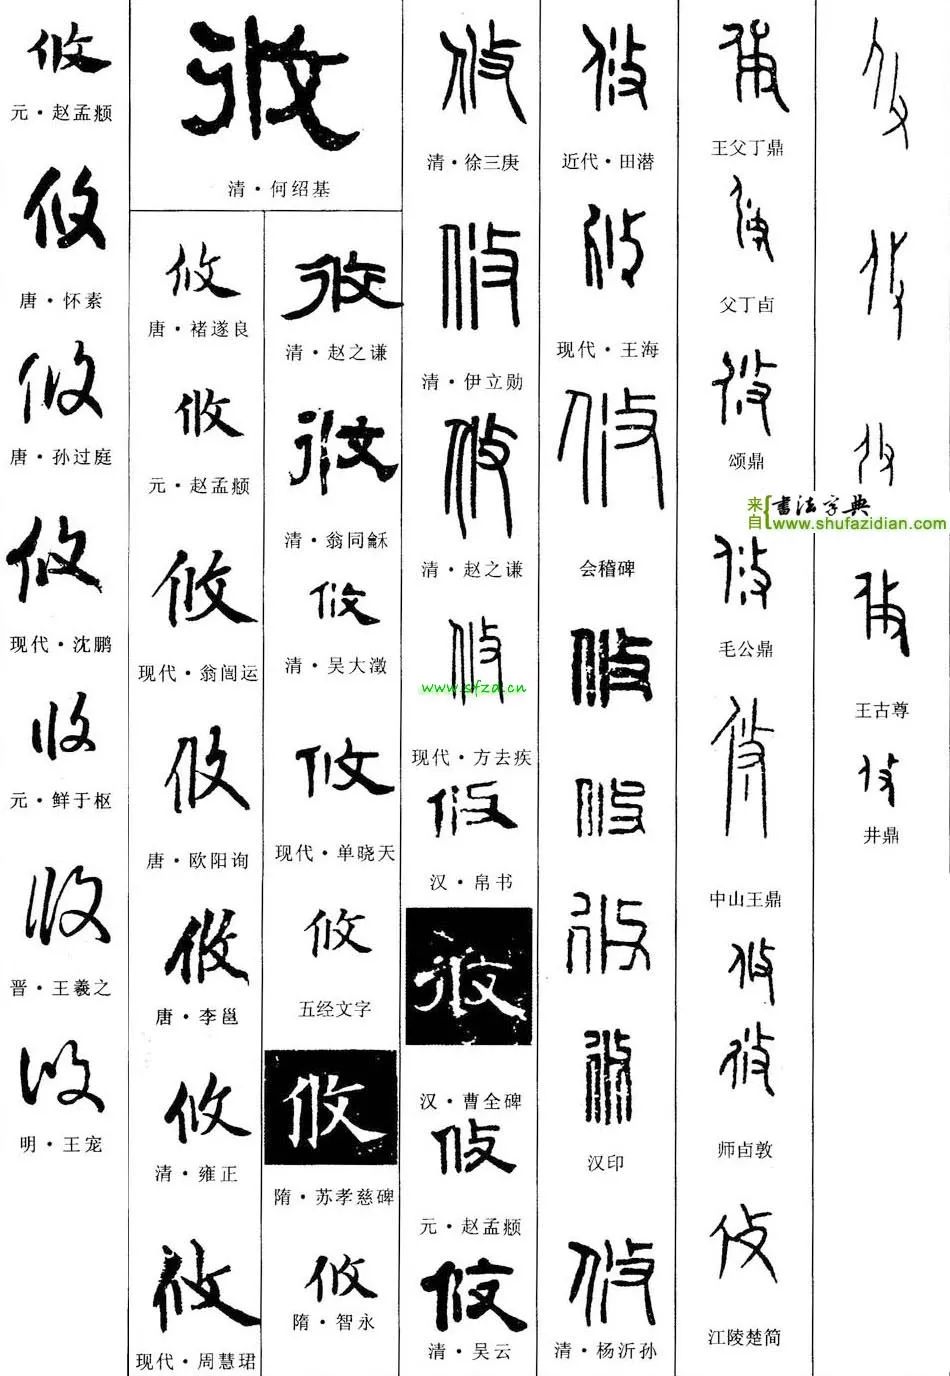 攸
元·赵孟頫
攸
唐·怀素
攸
唐·孙过庭
攸
现代·沈鹏
攸
元·鲜于枢
攸
晋·王羲之
攸
明·王宠
攸
清·何绍基
攸
唐·褚遂良
攸
元·赵孟頫
攸
现代·翁闿运
攸
唐·欧阳询
攸
唐·李邕
攸
清·雍正
攸
现代·周慧珺
攸
清·赵之谦
攸
清·翁同龢
攸
清·吴大澂
攸
现代·单晓天
攸
五经文字
攸
隋·苏孝慈碑
攸
隋·智永
攸
清·徐三庚
攸
清·伊立勋
攸
清·赵之谦
攸
www.sfzd.cn
现代·方去疾
攸
汉·帛书
攸
汉·曹全碑
攸
元·赵孟頫
攸
清·吴云
攸
近代·田潜
攸
现代·王海
攸
会稽碑
攸
攸
攸
攸
汉印
攸
清·杨沂孙
攸
王父丁鼎
攸
父丁卣
攸
颂鼎
来自 书法字典
www.shufazidian.com
攸
毛公鼎
攸
中山王鼎
攸
攸
师卣敦
攸
江陵楚简
攸
攸
攸
攸
王古尊
攸
井鼎